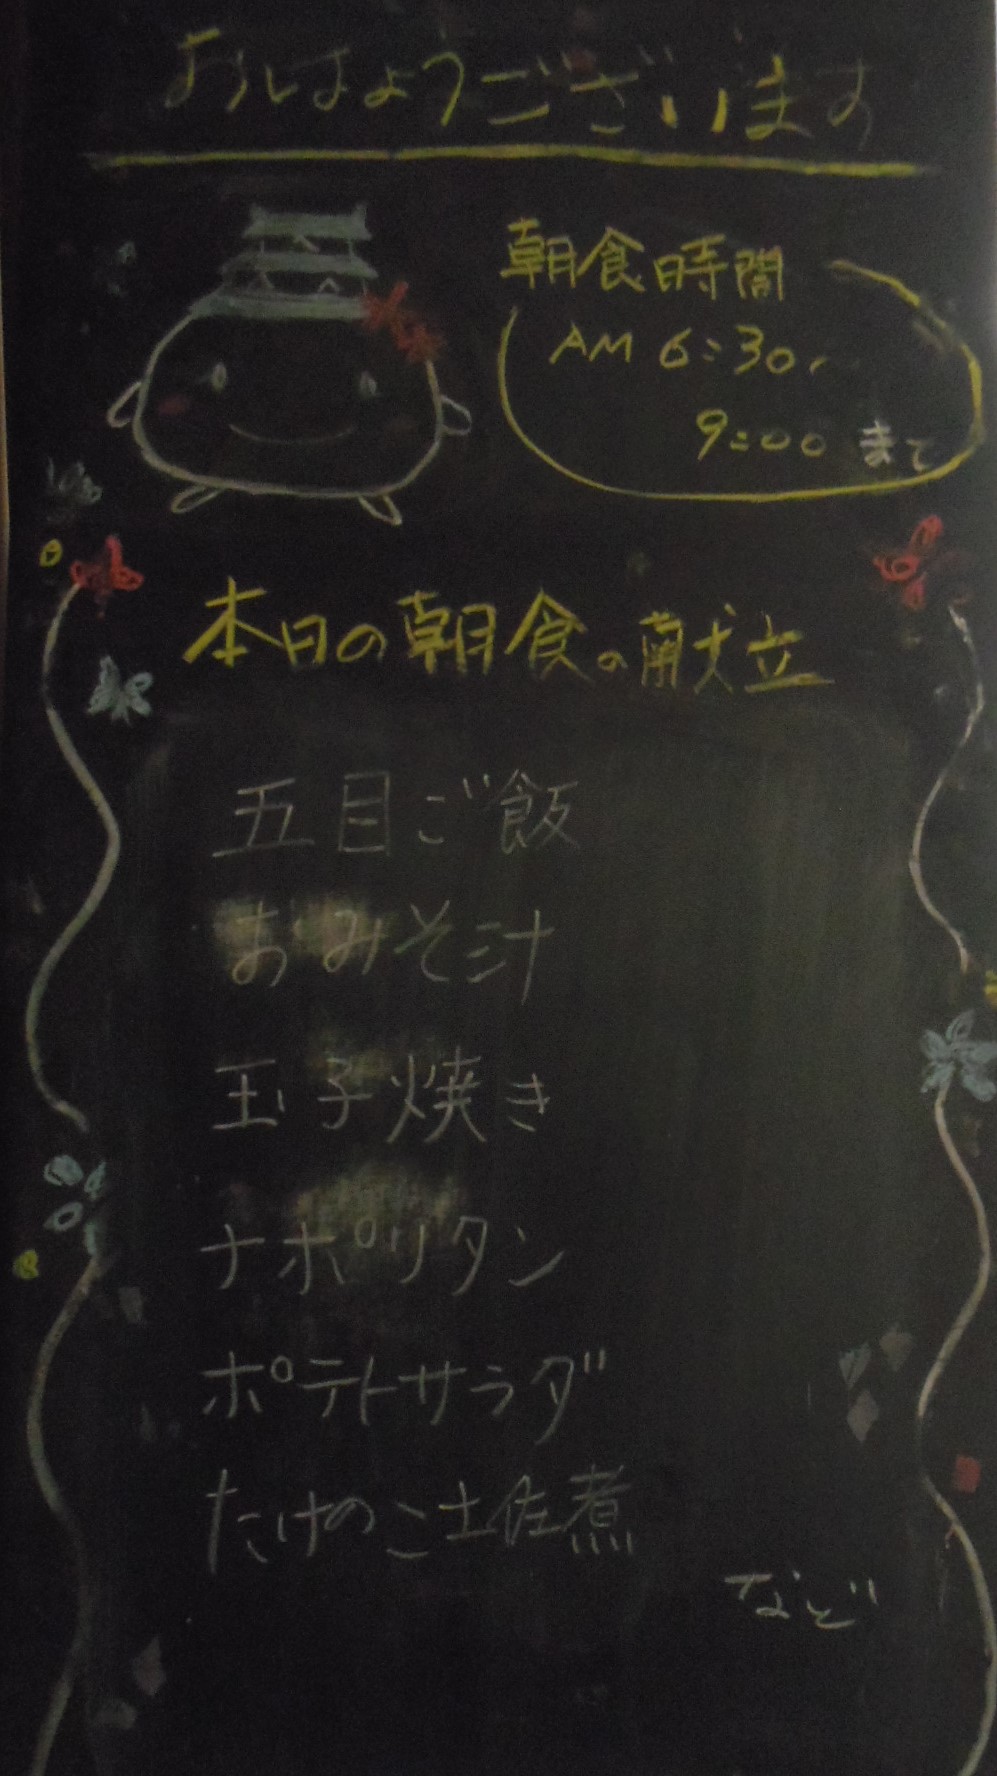 おはようございます
朝食時間
AM 6:30~
9:00 まで
本日の朝食の献立
五目ご飯
おみそ汁
玉子焼き
ナポリタン
ポテトサラダ
たけのこ土佐煮
など